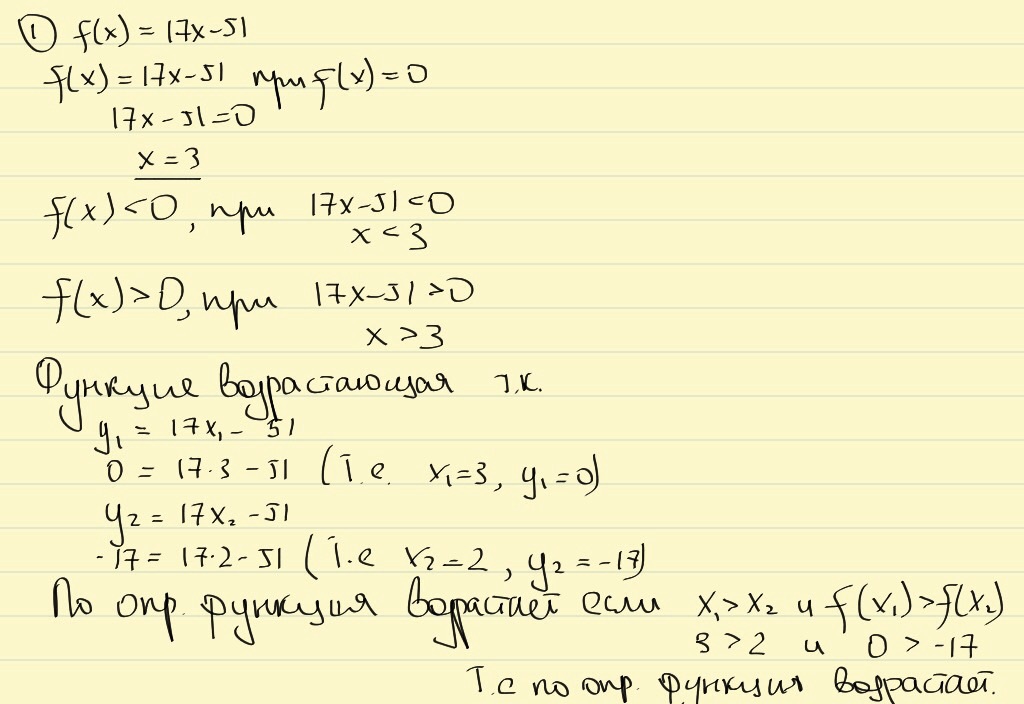 ① f(x) = 17x-51
f(x) = 17x-51 при f(x) = 0
17x-51=0
x = 3
f(x)<0, при 17x-51<0
x < 3
f(x)>0, при 17x-51>0
x >3
Функцие возрастающая т.к.
y₁ = 17x₁ - 51
0 = 17·3 - 51 (т.е. x₁=3, y₁=0)
y₂ = 17x₂ -51
-17= 17·2-51 (т.е x₂=2, y₂ =-17)
По опр. функция ворастает если x₁>x₂ и f(x₁)>f(x₂)
3 >2 и 0 > -17
Т.е по опр. функция возрастает.